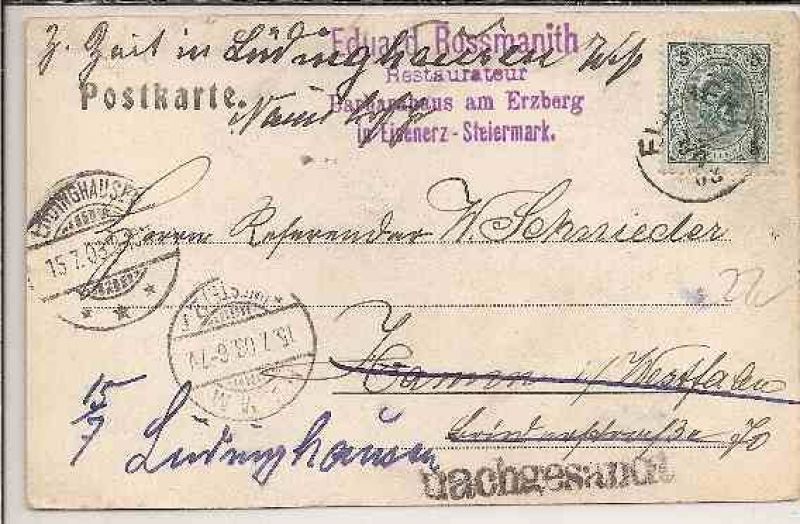 z. Zeit in Lüdinghausen
Eduard Rossmanith
Restaurateur
Barbarahaus am Erzberg
in Eisenerz - Steiermark.
Postkarte.
5 5
EISENERZ
03
LÜDINGHAUSEN
15.7.03
Herrn Referendar W. Schnieder
15.7.03.6-7
22
Hamm i/ Westfalen
70
15/7 Lüdinghausen
nachgesandt